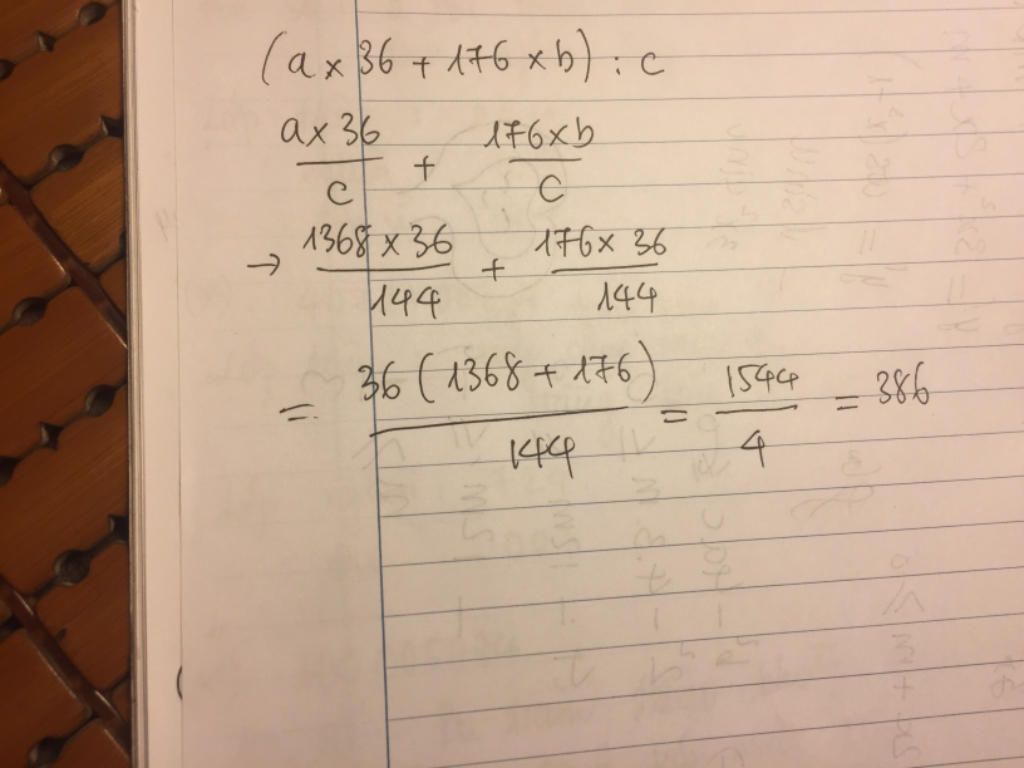 (a x 36 + 176 x b) : c
a x 36 / c + 176 x b / c
→ 1368 x 36 / 144 + 176 x 36 / 144
= 36 (1368 + 176) / 144 = 1544 / 4 = 386